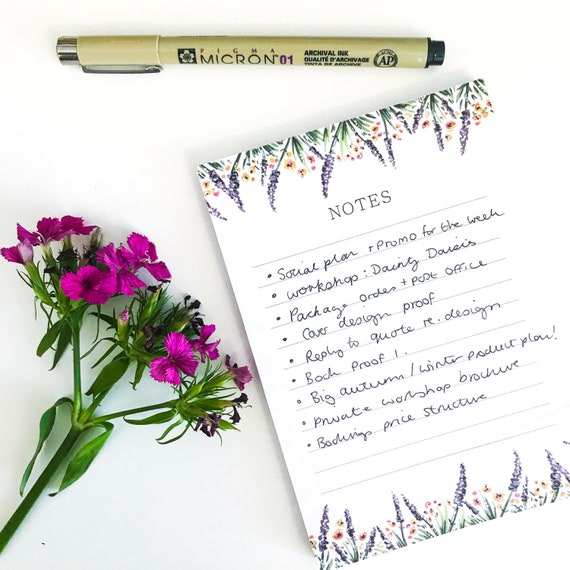 PIGMA
MICRON 01
ARCHIVAL INK
QUALITÉ D'ARCHIVAGE
TINTA DE ARCHIVE
AP
NOTES
• Social plan + Promo for the week
• Workshop: Dainty Daisies
• Package orders + Post Office
• Cover design proof
• Reply to quote re. design
• Book Proof 1.
• Big autumn/winter product plan!
• Private workshop brochure
• Bookings price structure